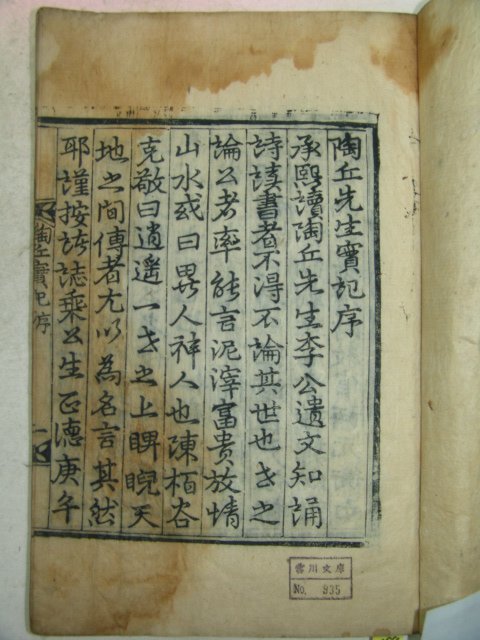 陶丘先生實記序
承熙讀陶丘先生李公遺文知誦
詩讀書者不得不論其世也世之
論公者率能言泥滓富貴放情
山水或曰異人祥人也陳栢谷
克敬曰逍遙一世之上睥睨天
地之間傳者尤以為名言其然
耶謹按諸誌乘公生正德庚午
陶丘實記序
一
雲川文庫
No. 935